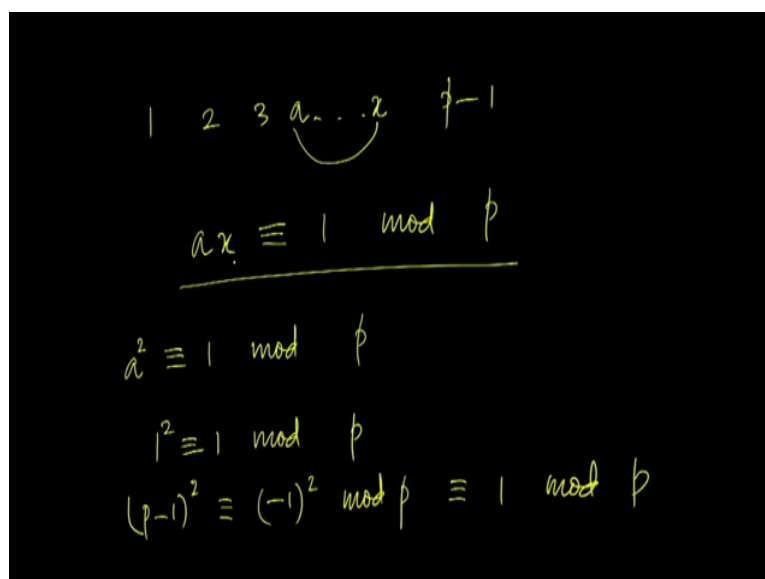 1 2 3 a . . . x p-1
ax ≡ 1 mod p
a² ≡ 1 mod p
1² ≡ 1 mod p
(p-1)² ≡ (-1)² mod p ≡ 1 mod p